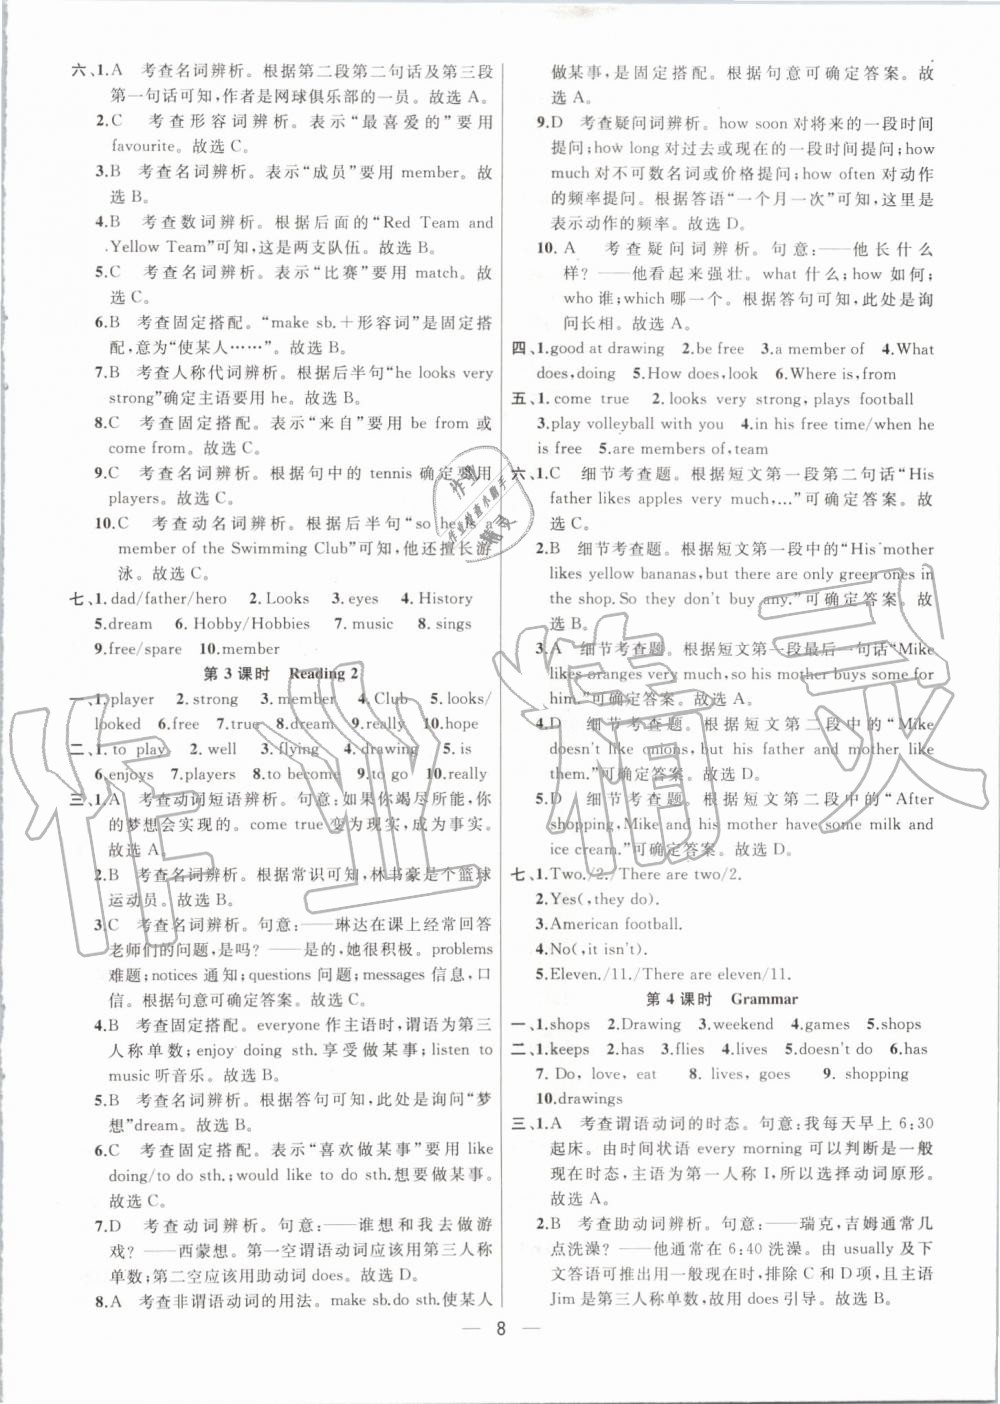 六、1.A 考查名词辨析。根据第二段第二句话及第三段
第一句话可知,作者是网球俱乐部的一员。故选A。
2.C 考查形容词辨析。表示“最喜爱的”要用
favourite。故选C。
3.B 考查名词辨析。表示“成员”要用member。故
选B。
4.B 考查数词辨析。根据后面的“Red Team and
Yellow Team”可知,这是两支队伍。故选B。
5.C 考查名词辨析。表示“比赛”要用match。故
选C。
6.B 考查固定搭配。“make sb.+形容词”是固定搭
配,意为“使某人……”。故选B。
7.B 考查人称代词辨析。根据后半句“he looks very
strong”确定主语要用he。故选B。
8.C 考查固定搭配。表示“来自”要用be from或
come from。故选C。
9.C 考查名词辨析。根据句中的tennis确定要用
players。故选C。
10.C 考查动名词辨析。根据后半句“so he is a
member of the Swimming Club”可知,他还擅长游
泳。故选C。
七、1.dad/father/hero 2.Looks 3.eyes 4.History
5.dream 6.Hobby/Hobbies 7.music 8.sings
9.free/spare 10.member
第3课时 Reading 2
一、1.player 2.strong 3.member 4.Club 5.looks/
looked 6.free 7.true 8.dream 9.really 10.hope
二、1.to play 2.well 3.flying 4.drawing 5.is
6.enjoys 7.players 8.to become 9.to go 10.really
三、1.A 考查动词短语辨析。句意:如果你竭尽所能,你
的梦想会实现的。come true变为现实,成为事实。
故选A。
2.B 考查名词辨析。根据常识可知,林书豪是个篮球
运动员。故选B。
3.C 考查名词辨析。句意:——琳达在课上经常回答
老师们的问题,是吗?——是的,她很积极。problems
难题;notices通知;questions问题;messages信息,口
信。根据句意可确定答案。故选C。
4.B 考查固定搭配。everyone作主语时,谓语为第三
人称单数;enjoy doing sth.享受做某事;listen to
music听音乐。故选B。
5.B 考查名词辨析。根据答句可知,此处是询问“梦
想”dream。故选B。
6.C 考查固定搭配。表示“喜欢做某事”要用like
doing/to do sth.;would like to do sth.想要做某事。
故选C。
7.D 考查动词辨析。句意:——谁想和我去做游
戏?——西蒙想。第一空谓语动词应该用第三人称
单数;第二空应该用助动词does。故选D。
8.A 考查非谓语动词的用法。make sb.do sth.使某人
做某事,是固定搭配。根据句意可确定答案。故
选A。
9.D 考查疑问词辨析。how soon对将来的一段时间
提问;how long对过去或现在的一段时间提问;how
much对不可数名词或价格提问;how often对动作
的频率提问。根据答语“一个月一次”可知,这里是
表示动作的频率。故选D。
10.A 考查疑问词辨析。句意:——他长什么
样?——他看起来强壮。what什么;how如何;
who谁;which哪一个。根据答句可知,此处是询
问长相。故选A。
四、1.good at drawing 2.be free 3.a member of 4.What
does,doing 5.How does,look 6.Where is,from
五、1.come true 2.looks very strong,plays football
3.play volleyball with you 4.in his free time/when he
is free 5.are members of,team
六、1.C 细节考查题。根据短文第一段第二句话“His
father likes apples very much,...”可确定答案。故
选C。
2.B 细节考查题。根据短文第一段中的“His mother
likes yellow bananas,but there are only green ones in
the shop.So they don't buy any.”可确定答案。故
选B。
3.A 细节考查题。根据短文第一段最后一句话“Mike
likes oranges very much,so his mother buys some for
him.”可确定答案。故选A。
4.D 细节考查题。根据短文第二段中的“Mike
doesn't like onions,but his father and mother like
them.”可确定答案。故选D。
5.D 细节考查题。根据短文第二段中的“After
shopping,Mike and his mother have some milk and
ice cream.”可确定答案。故选D。
七、1.Two./2./There are two/2.
2.Yes(,they do).
3.American football.
4.No(,it isn't).
5.Eleven./11./There are eleven/11.
第4课时 Grammar
一、1.shops 2.Drawing 3.weekend 4.games 5.shops
二、1.keeps 2.has 3.flies 4.lives 5.doesn't do 6.has
7. Do, love, eat 8. lives, goes 9. shopping
10.drawings
三、1.A 考查谓语动词的时态。句意:我每天早上6:30
起床。由时间状语every morning可以判断是一般
现在时态,主语为第一人称I,所以选择动词原形。
故选A。
2.B 考查助动词辨析。句意:——瑞克,吉姆通常几
点洗澡?——他通常在6:40洗澡。由usually及下
文答语可推出用一般现在时,排除C和D项,且主语
Jim是第三人称单数,故用does引导。故选B。
— 8 —
作业
作业检查小助手
精灵
作业精灵